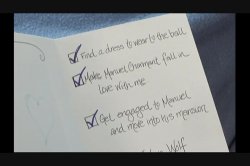 Find a dress to wear to the ball
Make Manuel Charmant fall in
love with me
Get engaged to Manuel
and move into his mansion
Wolf